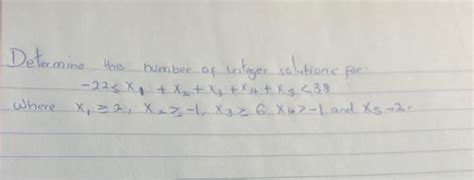 Determine the number of integer solutions for.
-22≤ x₁ + x₂ + x₃ + x₄ + x₅ < 38
where x₁ ≥ 2, x₂ ≥ -1, x₃ ≥ 6 x₄ > -1 and x₅ -2.